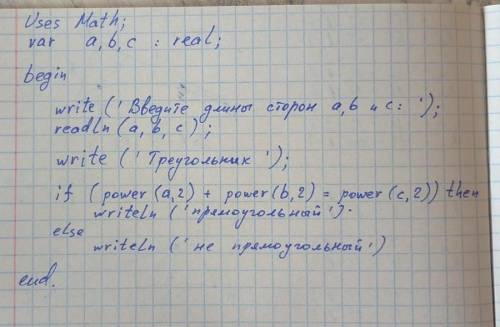 Uses Math;
var a,b,c : real;
begin
write ('Введите длины сторон a,b и c: ');
readln (a, b, c);
write ('Треугольник ');
if (power (a,2) + power (b,2) = power (c,2)) then
writeln ('прямоугольный').
else
writeln ('не прямоугольный')
end.